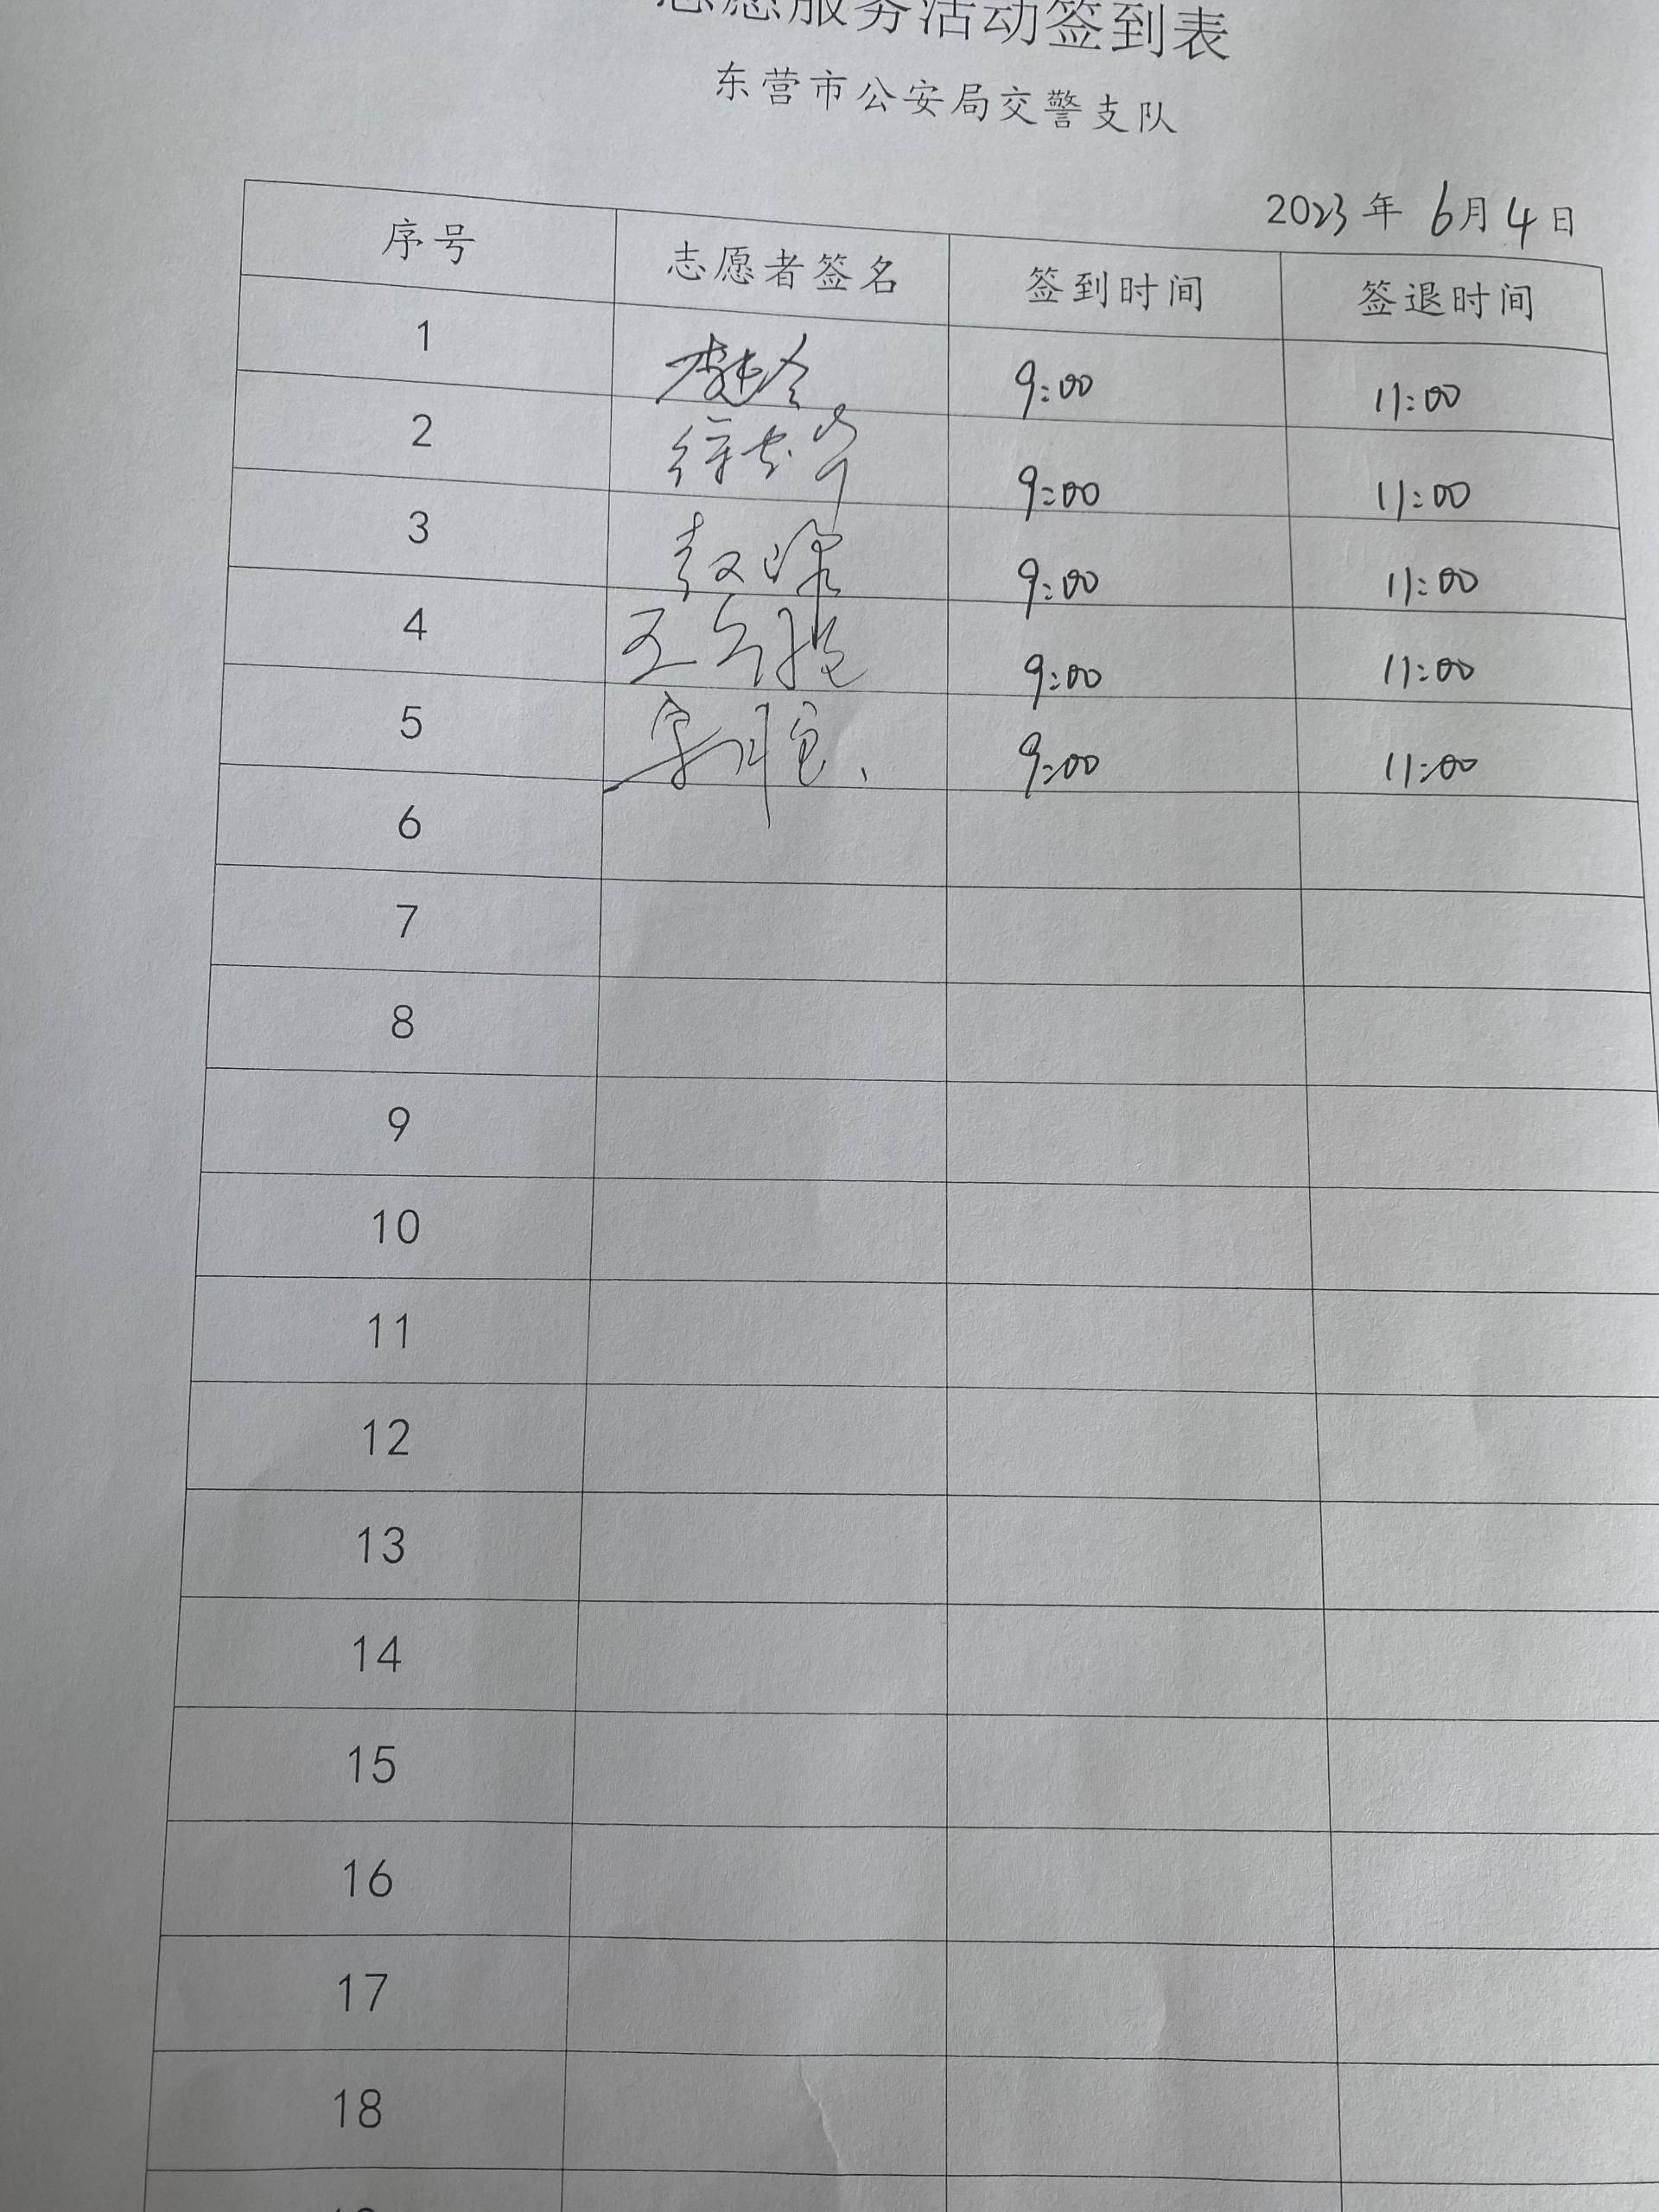 志愿服务活动签到表
东营市公安局交警支队
2023年 6月4日
序号 志愿者签名 签到时间 签退时间
1 9:00 11:00
2 9:00 11:00
3 9:00 11:00
4 王 9:00 11:00
5 9:00 11:00
6
7
8
9
10
11
12
13
14
15
16
17
18